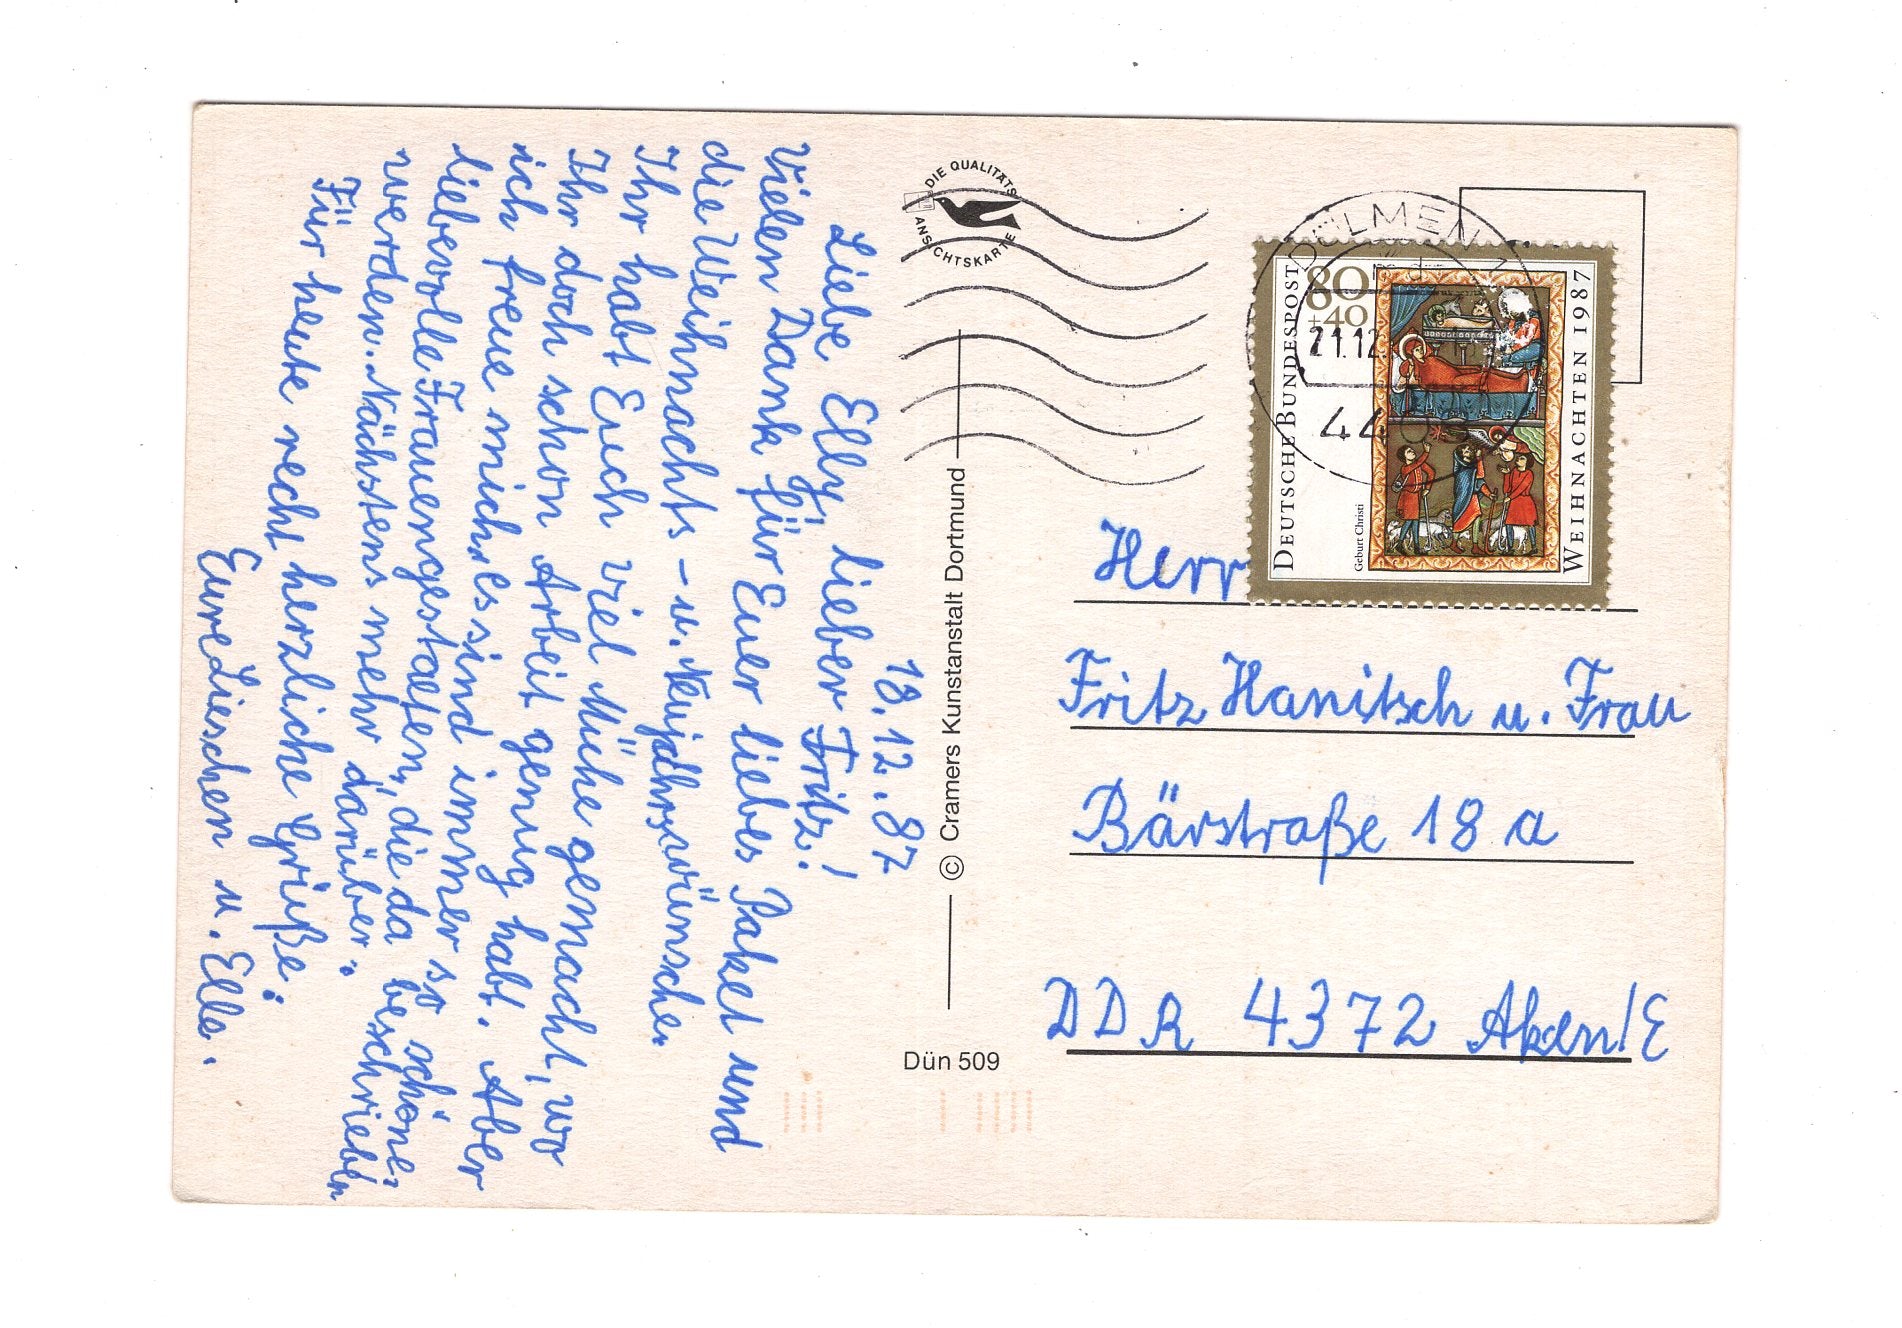 18.12.87
Liebe Elly, lieber Fritz!
Vielen Dank für Euer liebes Paket und
die Weihnachts- u. Neujahrswünsche.
Ihr habt Euch viel Mühe gemacht, wo
Ihr doch schon Arbeit genug habt. Aber
ich freue mich, es sind immer so schöne
liebevolle Frauengestalten, die da beschrieben
werden. Nächstens mehr darüber.
Für heute recht herzliche Grüße:
Eure Lieschen u. Elle.
DIE QUALITÄTS
ANSICHTSKARTE
© Cramers Kunstanstalt Dortmund
Dün 509
DÜLMEN 1
21.12
44
DEUTSCHE BUNDESPOST
80
+40
Geburt Christi
WEIHNACHTEN 1987
Herr
Fritz Hanitsch u. Frau
Bärstraße 18 a
DDR 4372 Aken/E